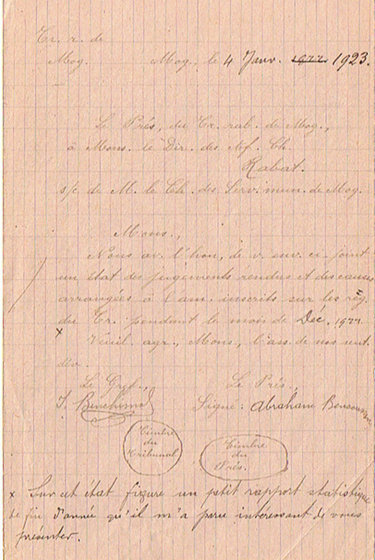 Tr. r. de
Mog. Mog. le 4 Janv. 1922 1923.
Le Prés. du Tr. rab. de Mog.,
à Mons. le Dir. des Aff. Ch.
Rabat.
s/c de M. le Ch. des Serv. mun. de Mog.
Mons.,
Nous av. l'hon. de v. env. ci joint
un état des jugements rendus et des causes
arrangées à l'am. inscrits sur les reg.
du Tr. pendant le mois de Déc. 1922
x Veuil. agr., Mons., l'ass. de nos sent.
dév.
Le Gref., Le Prés.,
J. Benchimol Signé: Abraham Bensoussan
Timbre
du
Tribunal
Timbre
du
Prés.
x Sur cet état figure un ptit rapport statistique
de fin d'année qu'il m'a paru intéressant de vous
présenter.